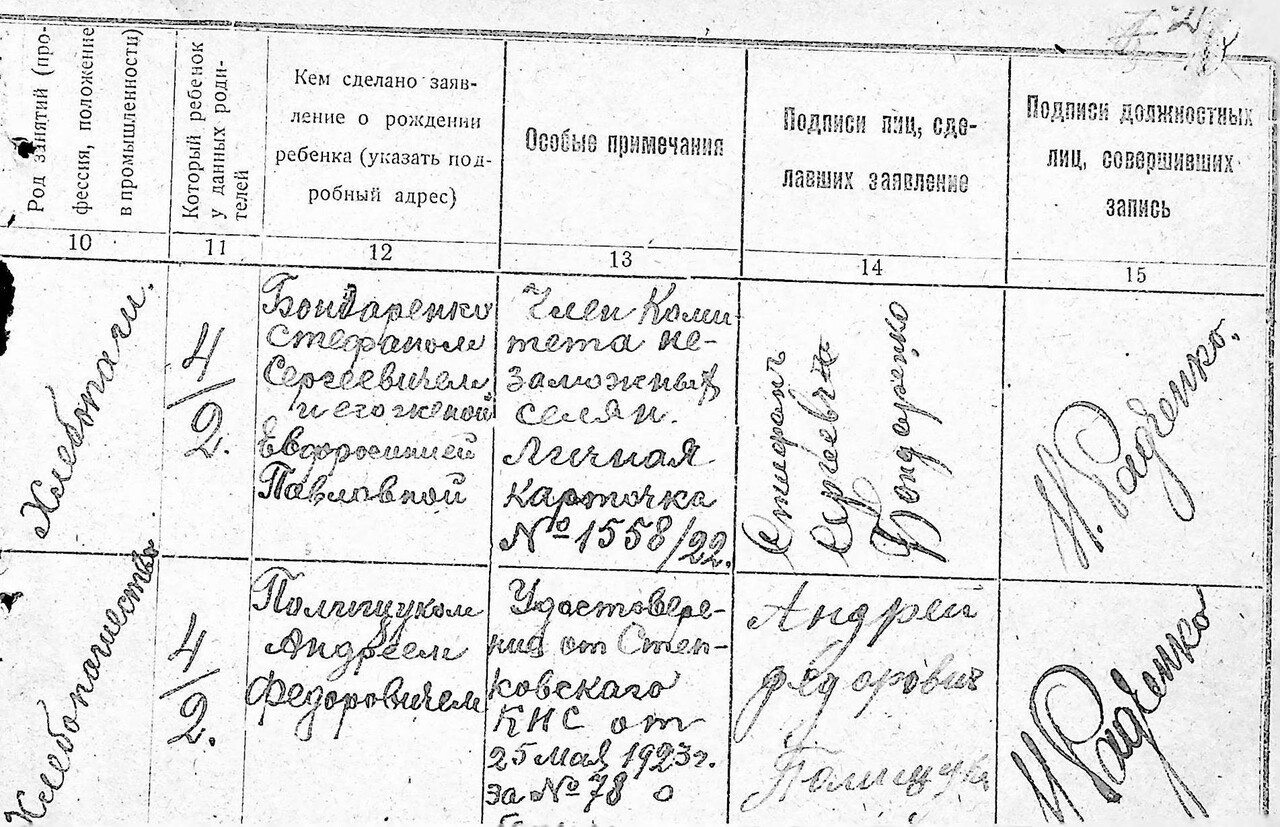 Род занятий (про-
фессия, положение
в промышленности)
Который ребенок
у данных роди-
телей
Кем сделано заяв-
ление о рождении
ребенка (указать под-
робный адрес)
Особые примечания
Подписи лиц, сде-
лавших заявление
Подписи должностных
лиц, совершивших
запись
10
11
12
13
14
15
Хлебопаш.
4/2.
Бондаренко
Стефаном
Сергеевичем
и его женой
Евфросинией
Павловной
Член Коми-
тета не-
заможных
селян.
Личная
карточка
№ 1558/22.
Стефанъ
Сергеевич
Бондаренко
Н. Радченко.
Хлебопашество
4/2.
Полищуком
Андреем
Федоровичем
Удостовере-
ние от Степ-
ковского
КНС от
25 мая 1923 г.
за № 78 о
Андрей
Федорович
Палищук
Н. Радченко